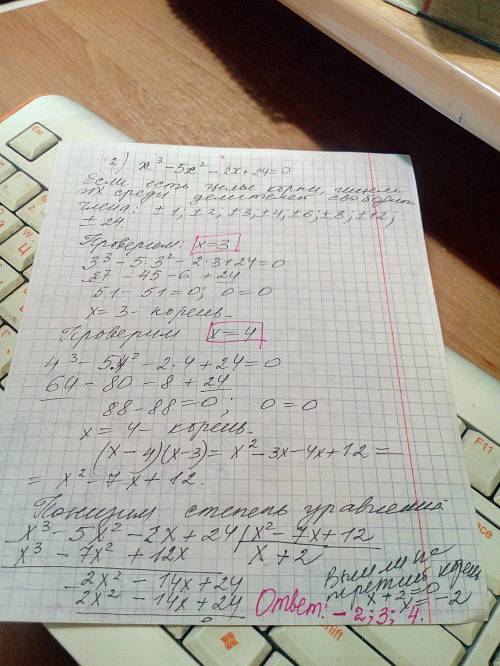 2) x³ - 5x² - 2x + 24 = 0
Если есть целые корни, ищем
их среди делителей свободного
члена: ± 1; ± 2; ± 3; ± 4; ± 6; ± 8; ± 12;
± 24.
Проверим: x = 3
3³ - 5·3² - 2·3 + 24 = 0
27 - 45 - 6 + 24
51 - 51 = 0; 0 = 0
x = 3 - корень.
Проверим x = 4
4³ - 5·4² - 2·4 + 24 = 0
64 - 80 - 8 + 24
88 - 88 = 0; 0 = 0
x = 4 - корень.
(x - 4)(x - 3) = x² - 3x - 4x + 12 =
= x² - 7x + 12.
Понизим степень уравнения
x³ - 5x² - 2x + 24 | x² - 7x + 12
x³ - 7x² + 12x x + 2
2x² - 14x + 24
2x² - 14x + 24
0
Вышли на
третий корень
x + 2 = 0
x = -2
Ответ: -2; 3; 4.
Esc
F11
Shift